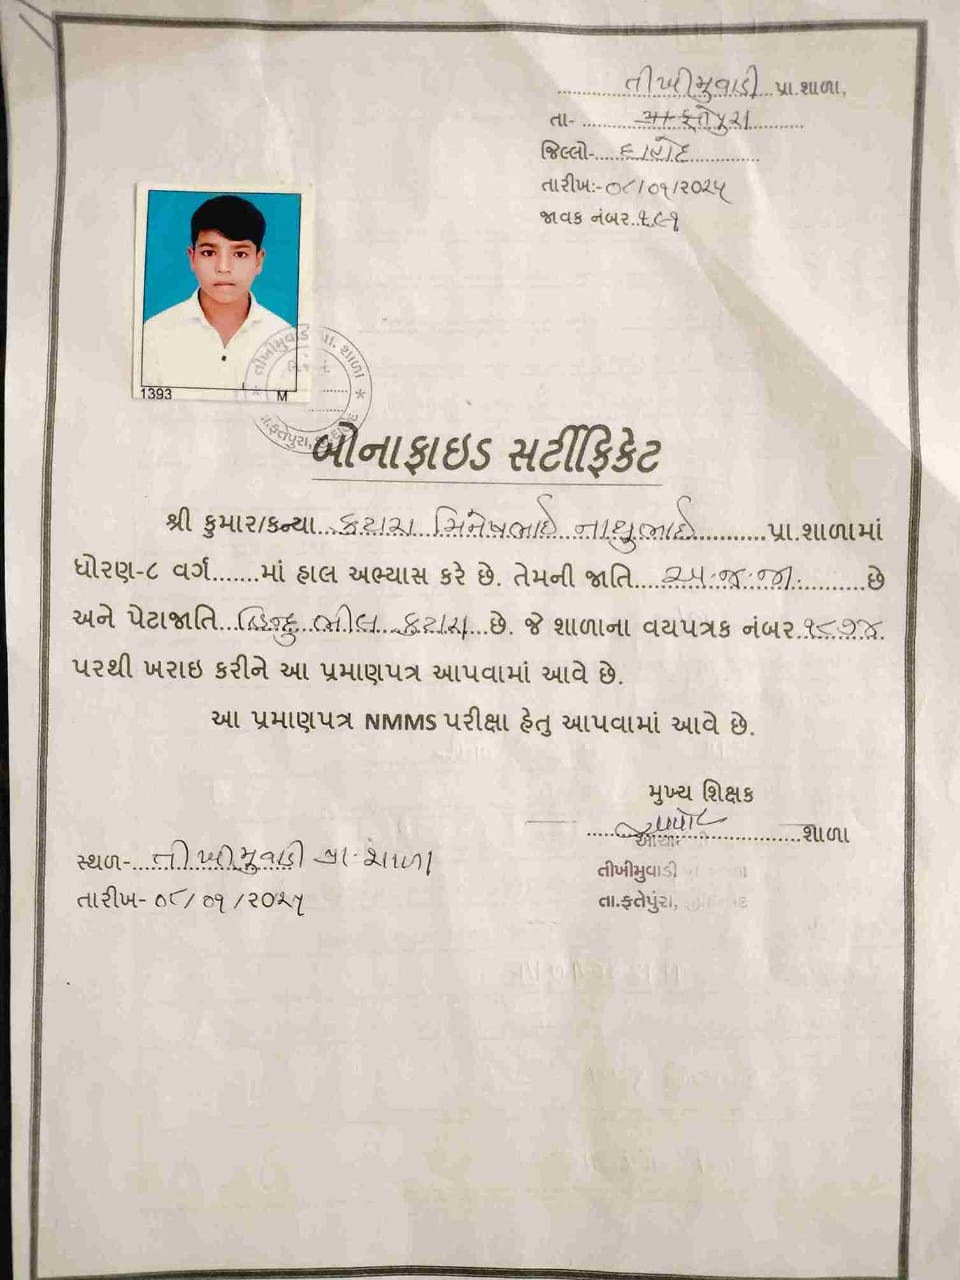 તીખીમુવાડી પ્રા.શાળા,
તા- ફતેપુરા
જિલ્લો- દાહોદ
તારીખ:- ૦૮/૦૧/૨૦૨૫
જાવક નંબર..
1393 M
તીખીમુવાડી પ્રા. શાળા
તા.ફતેપુરા,
બોનાફાઇડ સર્ટીફિકેટ
શ્રી કુમાર/કન્યા..કટારા મિનેષભાઈ નાથુભાઈ...........પ્રા.શાળામાં
ધોરણ-૮ વર્ગ.......માં હાલ અભ્યાસ કરે છે. તેમની જાતિ....અ.જ.જા..........છે
અને પેટાજાતિ..હિન્દુ ભીલ કટારા...છે. જે શાળાના વયપત્રક નંબર.૧૮૭૪.
પરથી ખરાઇ કરીને આ પ્રમાણપત્ર આપવામાં આવે છે.
આ પ્રમાણપત્ર NMMS પરીક્ષા હેતુ આપવામાં આવે છે.
મુખ્ય શિક્ષક
શાળા
સ્થળ-...તીખીમુવાડી પ્રા.શાળા
તારીખ- ૦૮/૦૧/૨૦૨૫
તીખીમુવાડી
તા.ફતેપુરા,